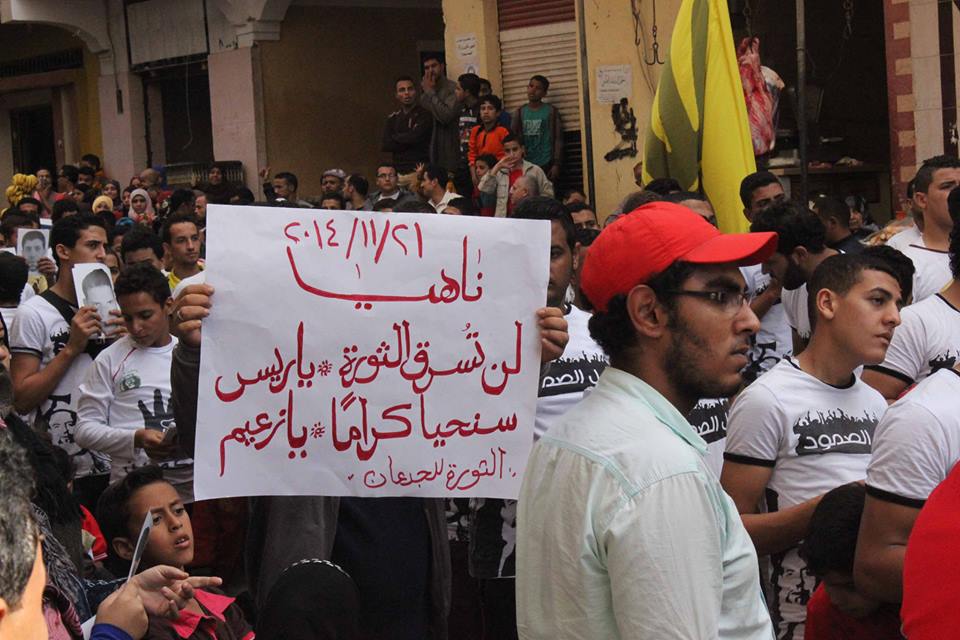 ٢٠١٤/١١/٢١
ناهيا
لن تُسرق الثورة * ياريس
سنحيا كرامًا * يازعيم
الثورة للجدعان
الصمود
الصمو